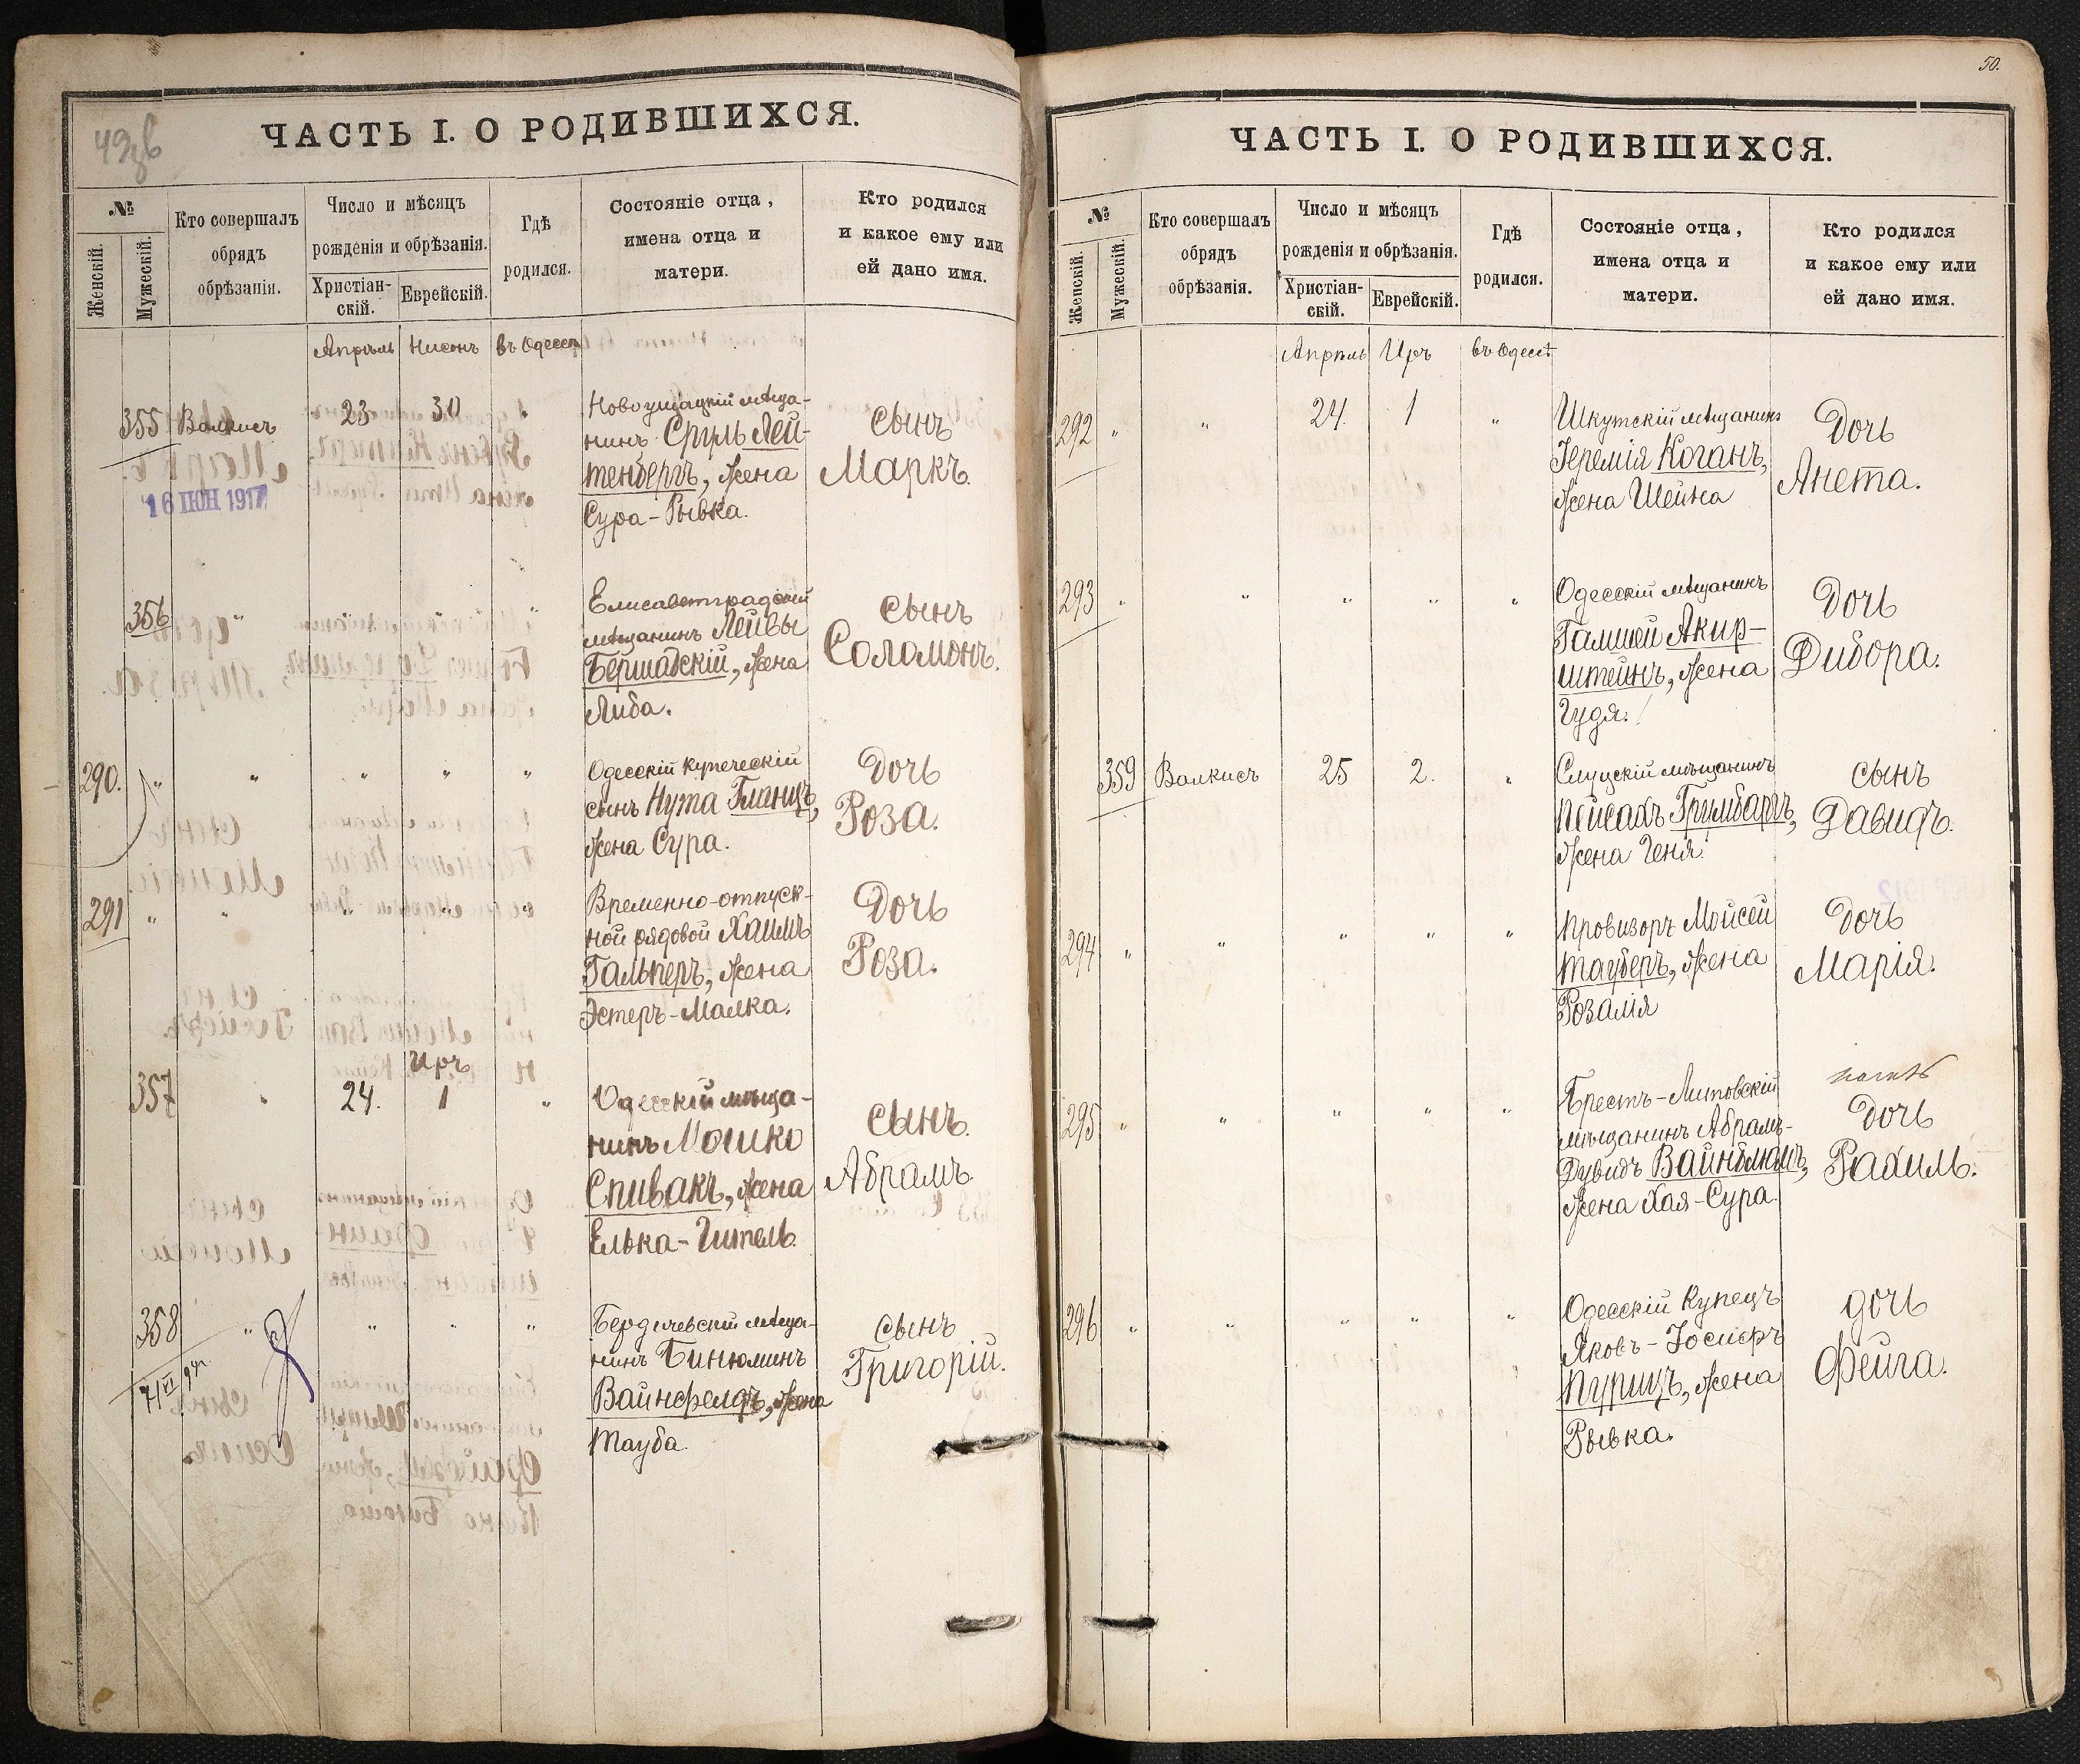 ЧАСТЬ I. О РОДИВШИХСЯ.
№
Женскій.
Мужескій.
Кто совершалъ
обрядъ
обрѣзанія.
Число и мѣсяцъ
рожденія и обрѣзанія.
Христіан-
скій.
Еврейскій.
Гдѣ
родился.
Состояніе отца,
имена отца и
матери.
Кто родился
и какое ему или
ей дано имя.
Апрѣль Нисонъ въ Одессѣ
355 Волкисъ 23 30 "
Новоушацкій мѣща-
нинъ Сруль Лей-
тенбергъ, жена
Сура-Рывка.
Сынъ
Маркъ.
16 ІЮН 1917
356 " " " "
Елисаветградскій
мѣщанинъ Лейвы
Бершадскій, жена
Либа.
Сынъ
Соломонъ.
290. " " " " "
Одесскій купеческій
сынъ Нута Гланцъ,
жена Сура.
Дочь
Роза.
291 " "
Временно-отпуск-
ной рядовой Хаимъ
Гальперъ, жена
Эстеръ-Малка.
Дочь
Роза.
Иръ
357 " 24. 1 "
Одесскій мѣща-
нинъ Мошко
Спивакъ, жена
Елька-Гитель.
Сынъ.
Абрамъ
358 " " " "
Бердичевскій мѣща-
нинъ Бинюминъ
Вайнфелдъ, жена
Тауба.
Сынъ
Григорій.
50.
ЧАСТЬ I. О РОДИВШИХСЯ.
№
Женскій.
Мужескій.
Кто совершалъ
обрядъ
обрѣзанія.
Число и мѣсяцъ
рожденія и обрѣзанія.
Христіан-
скій.
Еврейскій.
Гдѣ
родился.
Состояніе отца,
имена отца и
матери.
Кто родился
и какое ему или
ей дано имя.
Апрѣль Иръ въ Одессѣ
292 " " 24. 1 "
Шкутскій мѣщанинъ
Іеремія Коганъ,
жена Шейна
Дочь
Анета.
293 " " " " "
Одесскій мѣщанинъ
Гамшей Акир-
штейнъ, жена
Гудя.
Дочь
Дибора.
359 Волкисъ 25 2. "
Слуцскій мѣщанинъ
Пейсахъ Грумбергъ,
жена Геня.
Сынъ
Давидъ.
294 " " " " "
Провизоръ Мойсей
Тауберъ, жена
Розалія
Дочь
Марія.
295 " " " " "
Брестъ-Литовскій
мѣщанинъ Абрамъ-
Дувидъ Вайнблюмъ,
жена Хая-Сура.
Дочь
Рахиль.
296 " " " " "
Одесскій Купецъ
Яковъ-Іосифъ
Пурицъ, жена
Рывка.
дочь
Фейга.